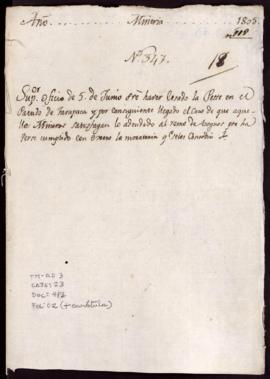 Año Mineria 1805
Nº 347. 18
Sup.or Oficio de 5. de Junio s̃re haver Cesado la Peste en el
Partido de Tarapaca y por consiguiente llegado el Caso de que aque-
llos Mineros satisfagan lo adeudado al ramo de Azogues por ha
verse cumplido con exceso la moratoria q.e se les Concedió
TM-AD 3
CAJA: 23
DOC: 482
FOL: 02 (+ carátula)